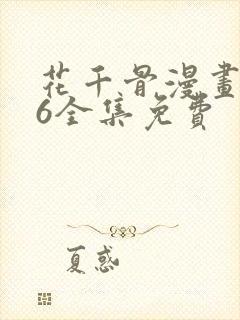 花千骨漫畫
6全集免費
夏惑